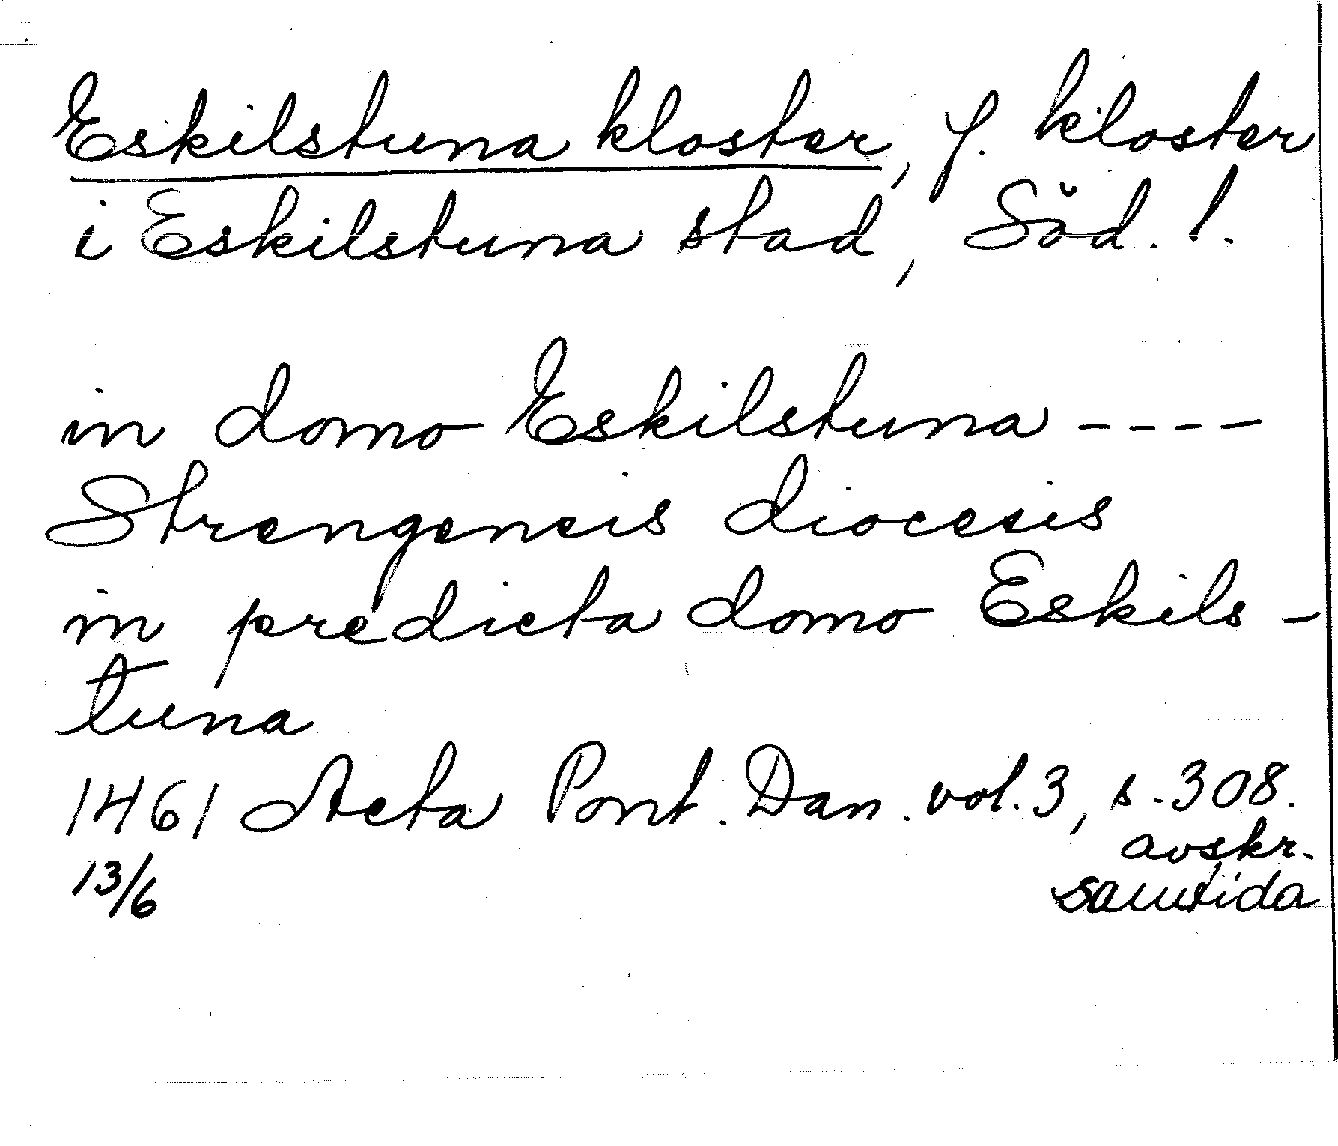 Eskilstuna kloster, f. kloster
i Eskilstuna stad, Söd. l.
in domo Eskilstuna ----
Strengencis diocesis
in predicta domo Eskils-
tuna
1461 Acta Pont. Dan. vol. 3, s. 308.
13/6 avskr.
samtida